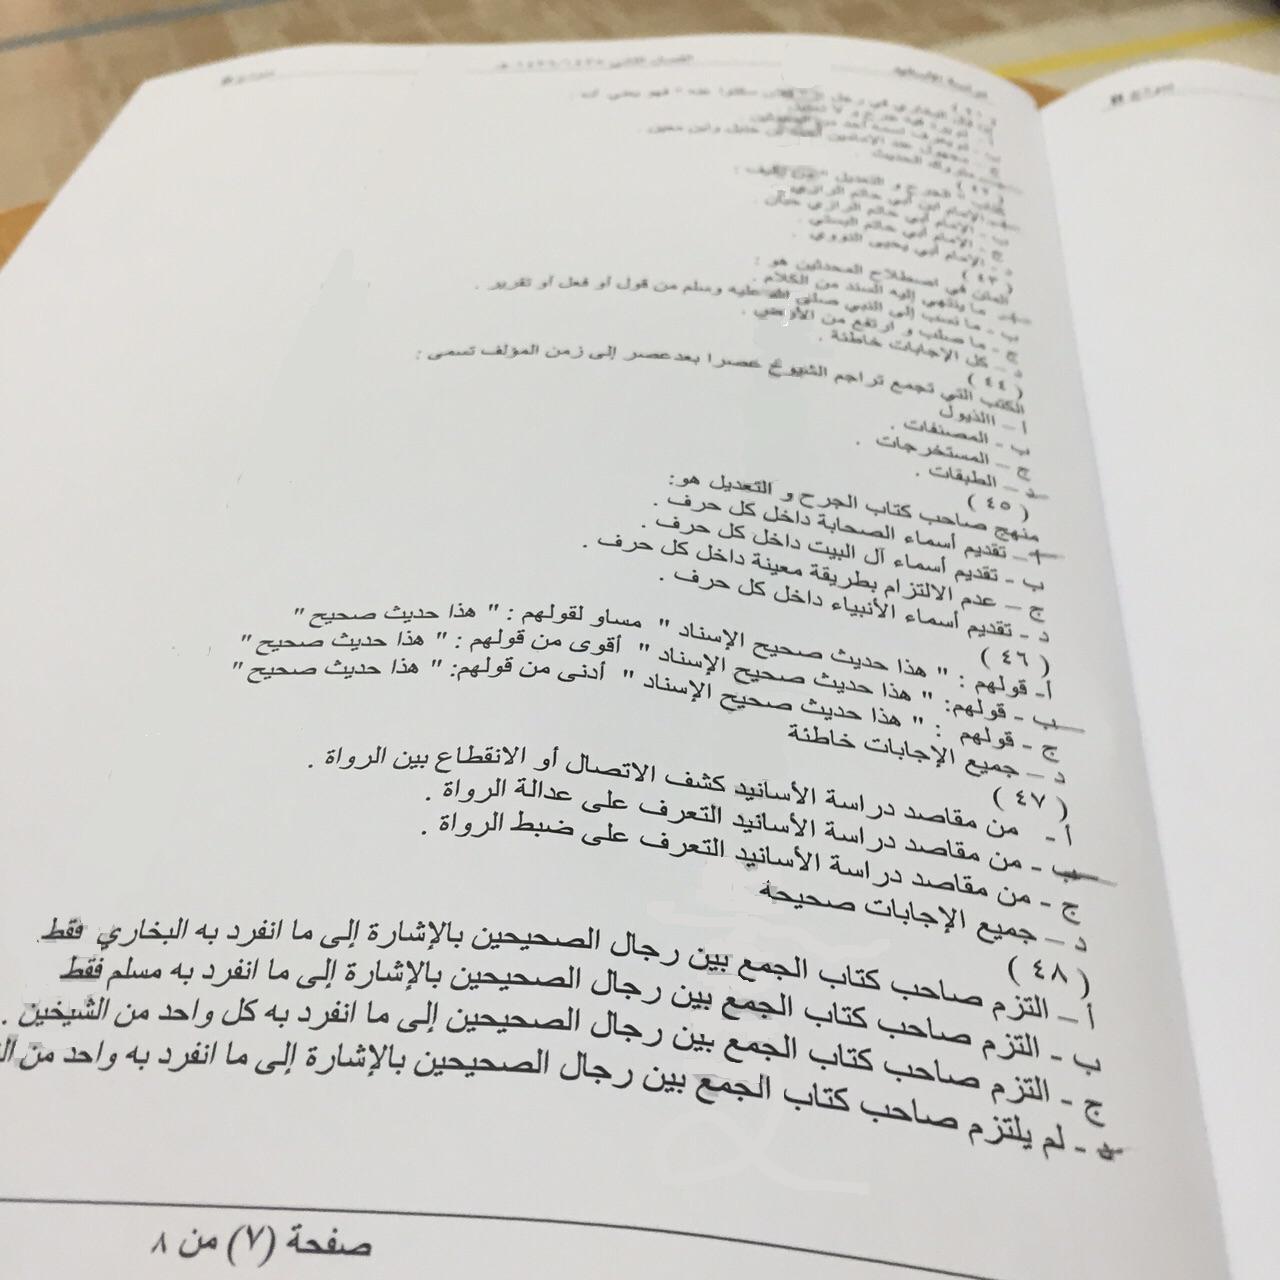 دراسة الأسانيد الفصل الثاني
نموذج B
( ٤١ )
البخاري في رجل سكتوا عنه " فهو يعني أنه :
أ - لم يرد فيه جرح و لا تعديل .
ب - لم يعرف اسمه أحد من
ج - مجهول عند الإمامين أحمد بن حنبل وابن معين .
د - متروك الحديث .
( ٤٢ )
كتاب " الجرح و التعديل " من تأليف :
أ - الإمام ابن أبي حاتم الرازي .
ب - الإمام أبي حاتم الرازي حبان .
ج - الإمام أبي حاتم البستي .
د - الإمام أبي يحيى النووي .
( ٤٣ )
المتن في اصطلاح المحدثين هو :
أ - ما ينتهي إليه السند من الكلام .
ب - ما نسب إلى النبي صلى الله عليه وسلم من قول أو فعل أو تقرير .
ج - ما صلب و ارتفع من الأرض .
د - كل الإجابات خاطئة .
( ٤٤ )
الكتب التي تجمع تراجم الشيوخ عصرا بعدعصر إلى زمن المؤلف تسمى :
أ – االذيول
ب - المصنفات .
ج – المستخرجات .
د – الطبقات .
( ٤٥ )
منهج صاحب كتاب الجرح و التعديل هو:
أ – تقديم أسماء الصحابة داخل كل حرف .
ب - تقديم أسماء آل البيت داخل كل حرف .
ج – عدم الالتزام بطريقة معينة داخل كل حرف .
د - تقديم أسماء الأنبياء داخل كل حرف .
( ٤٦ )
أ- قولهم : " هذا حديث صحيح الإسناد " مساو لقولهم : " هذا حديث صحيح "
ب - قولهم: " هذا حديث صحيح الإسناد " أقوى من قولهم : " هذا حديث صحيح "
ج - قولهم : " هذا حديث صحيح الإسناد " أدنى من قولهم: " هذا حديث صحيح "
د – جميع الإجابات خاطئة
( ٤٧ )
أ - من مقاصد دراسة الأسانيد كشف الاتصال أو الانقطاع بين الرواة .
ب - من مقاصد دراسة الأسانيد التعرف على عدالة الرواة .
ج - من مقاصد دراسة الأسانيد التعرف على ضبط الرواة .
د – جميع الإجابات صحيحة
( ٤٨ )
أ – التزم صاحب كتاب الجمع بين رجال الصحيحين بالإشارة إلى ما انفرد به البخاري فقط
ب - التزم صاحب كتاب الجمع بين رجال الصحيحين بالإشارة إلى ما انفرد به مسلم فقط
ج - التزم صاحب كتاب الجمع بين رجال الصحيحين إلى ما انفرد به كل واحد من الشيخين .
د - لم يلتزم صاحب كتاب الجمع بين رجال الصحيحين بالإشارة إلى ما انفرد به واحد من
صفحة (٧) من ٨